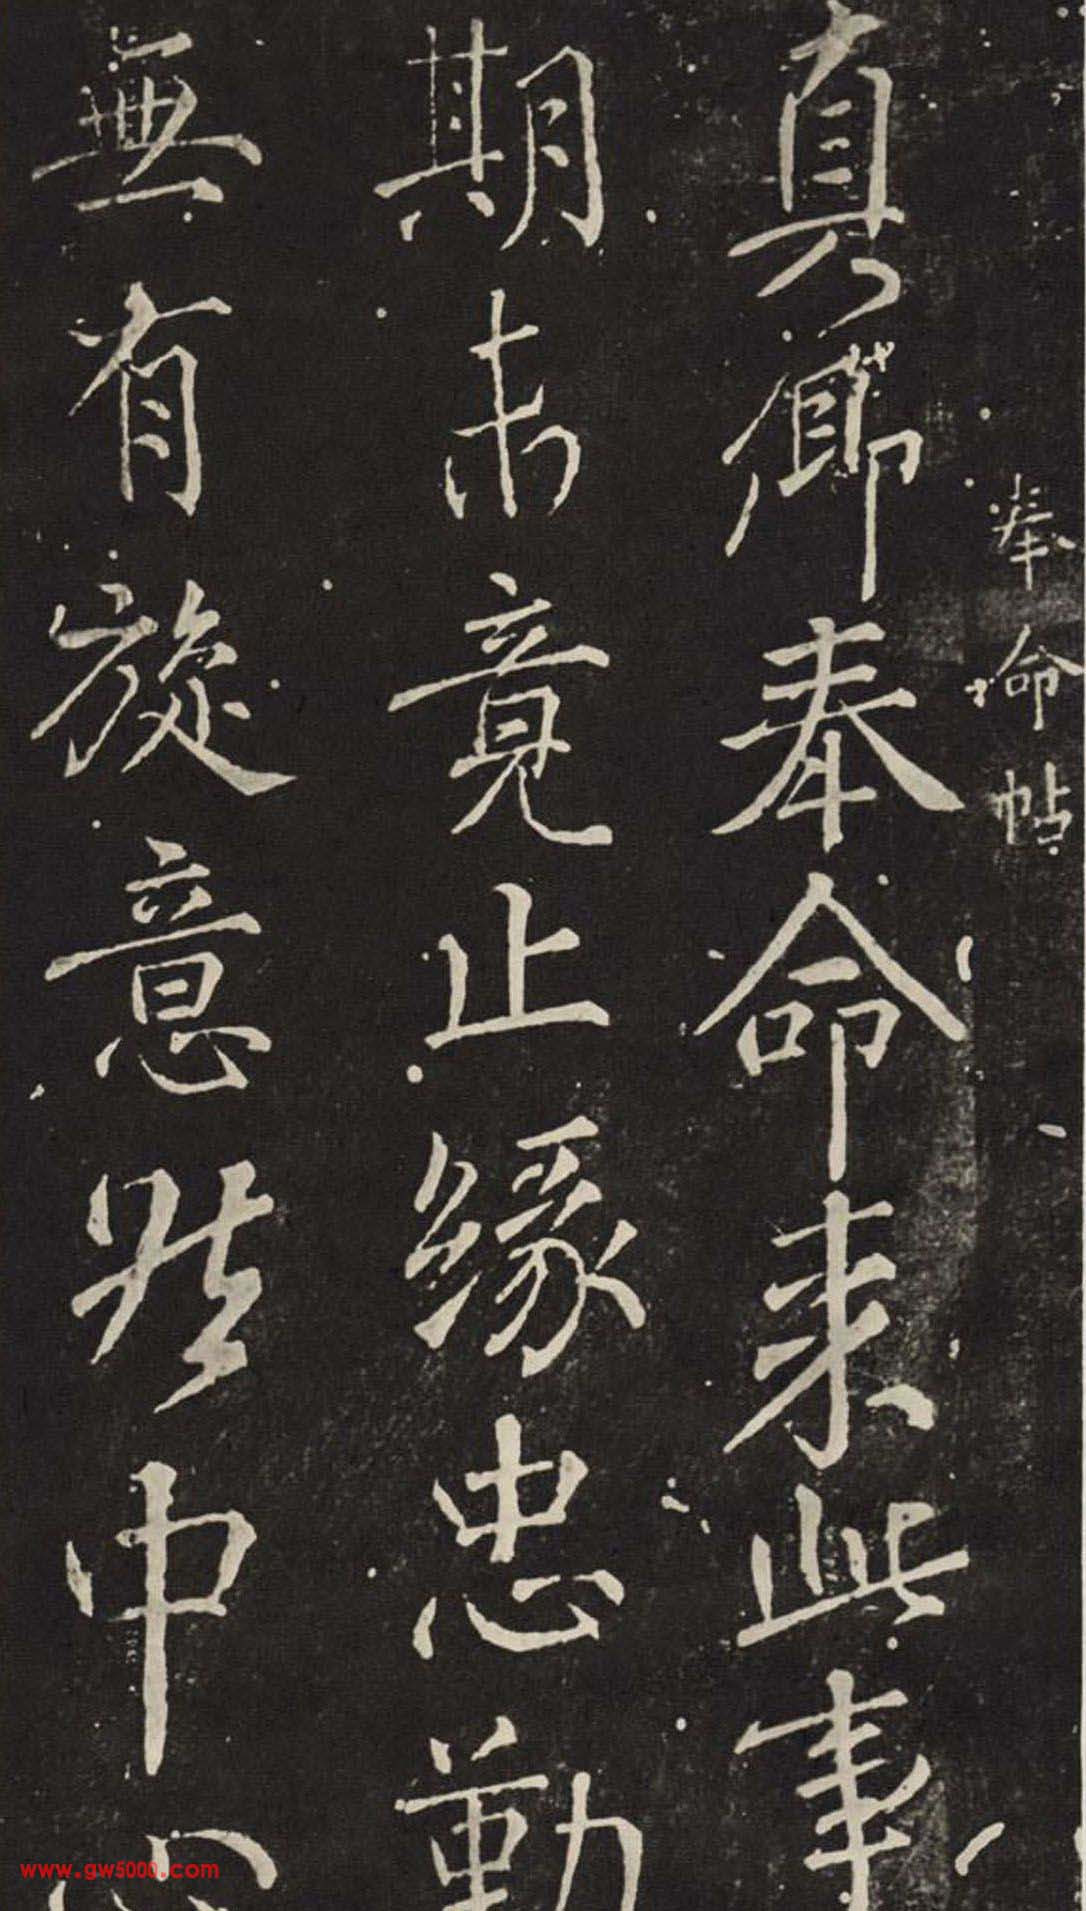 奉命帖
真卿奉命来此事
期未竟止緣忠勤
無有旋意然中心
www.gw5000.com